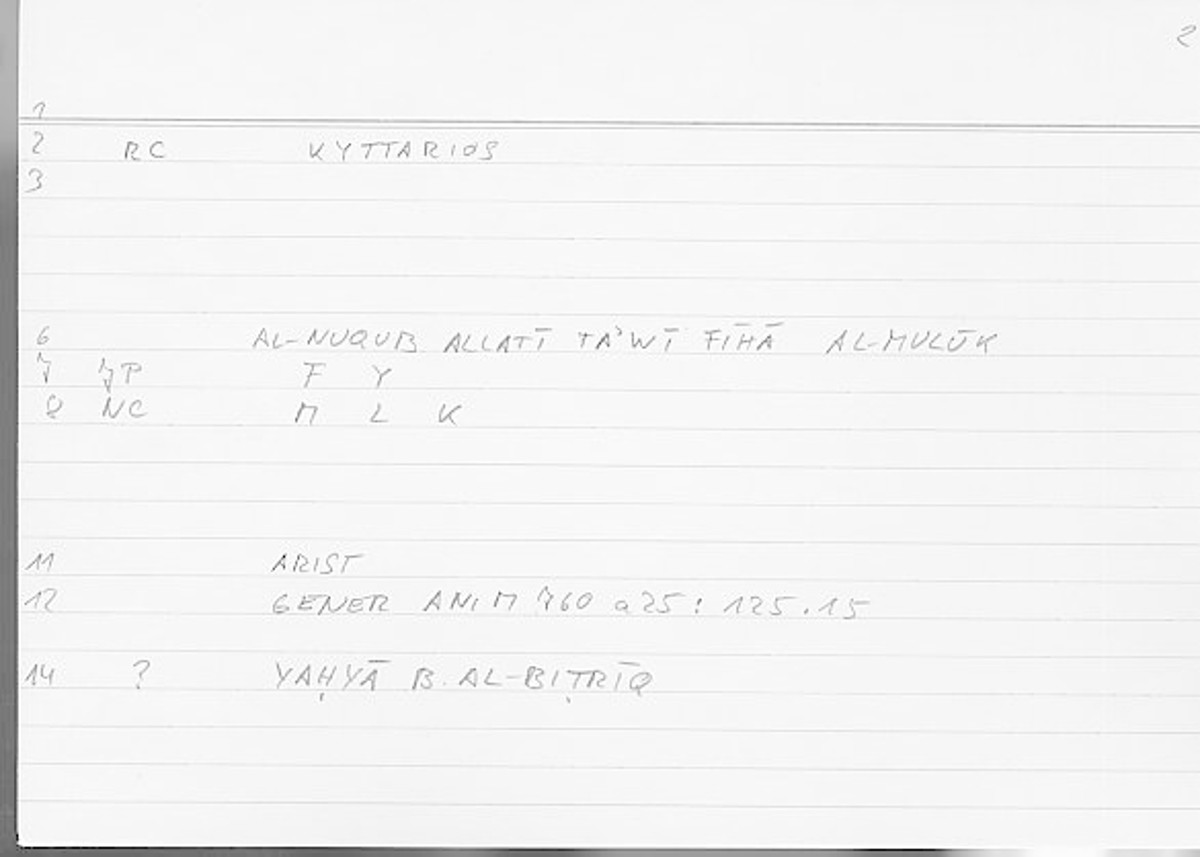 2
1
2 RC KYTTARIOS
3
6 AL-NUQUB ALLATĪ TA'WĪ FĪHĀ AL-MULŪK
7 JP F Y
8 NC M L K
11 ARIST
12 GENER ANIM 760 a25 : 125.15
14 ? YAḤYĀ B. AL-BIṬRĪQ